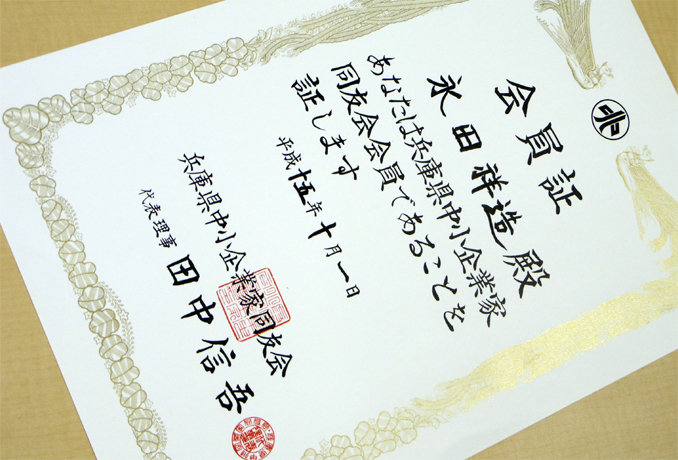 会員証
永田祥造殿
あなたは兵庫県中小企業家
同友会会員であることを
証します
平成十五年十月一日
兵庫県中小企業家同友会
代表理事 田中信吾